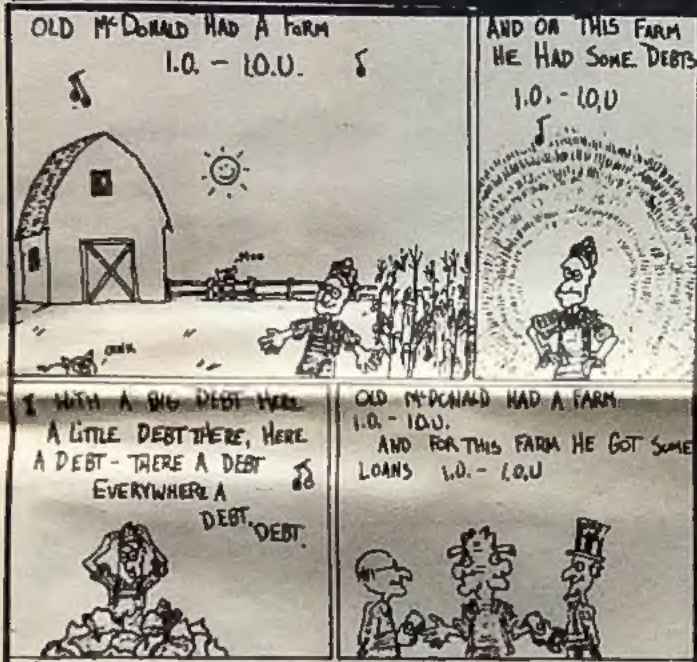 OLD McDONALD HAD A FORM
I.O. - I.O.U.
Moo
oink
AND ON THIS FARM
HE HAD SOME DEBTS
I.O. - I.O,U
WITH A BIG DEBT HERE
A LITTLE DEBT THERE, HERE
A DEBT - THERE A DEBT
EVERYWHERE A
DEBT, DEBT.
OLD McDONALD HAD A FARM
I.O. - I.O.U.
AND FOR THIS FARM HE GOT SOME
LOANS I.O. - I.O,U